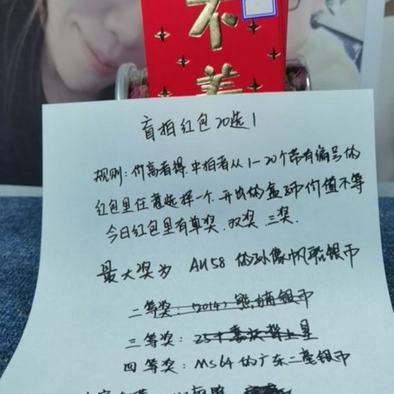 不
美
盲拍红包20选1
规则:价高者得中拍者从1-20个带有编号的
红包里任意选择一个.开出的盒子币价值不等
今日红包里有单奖.双奖.三奖.
最大奖为 AU58的孙像帆船银币
二等奖: (2014) 熊猫银币
三等奖:
四等奖: MS64的广东二毫银币